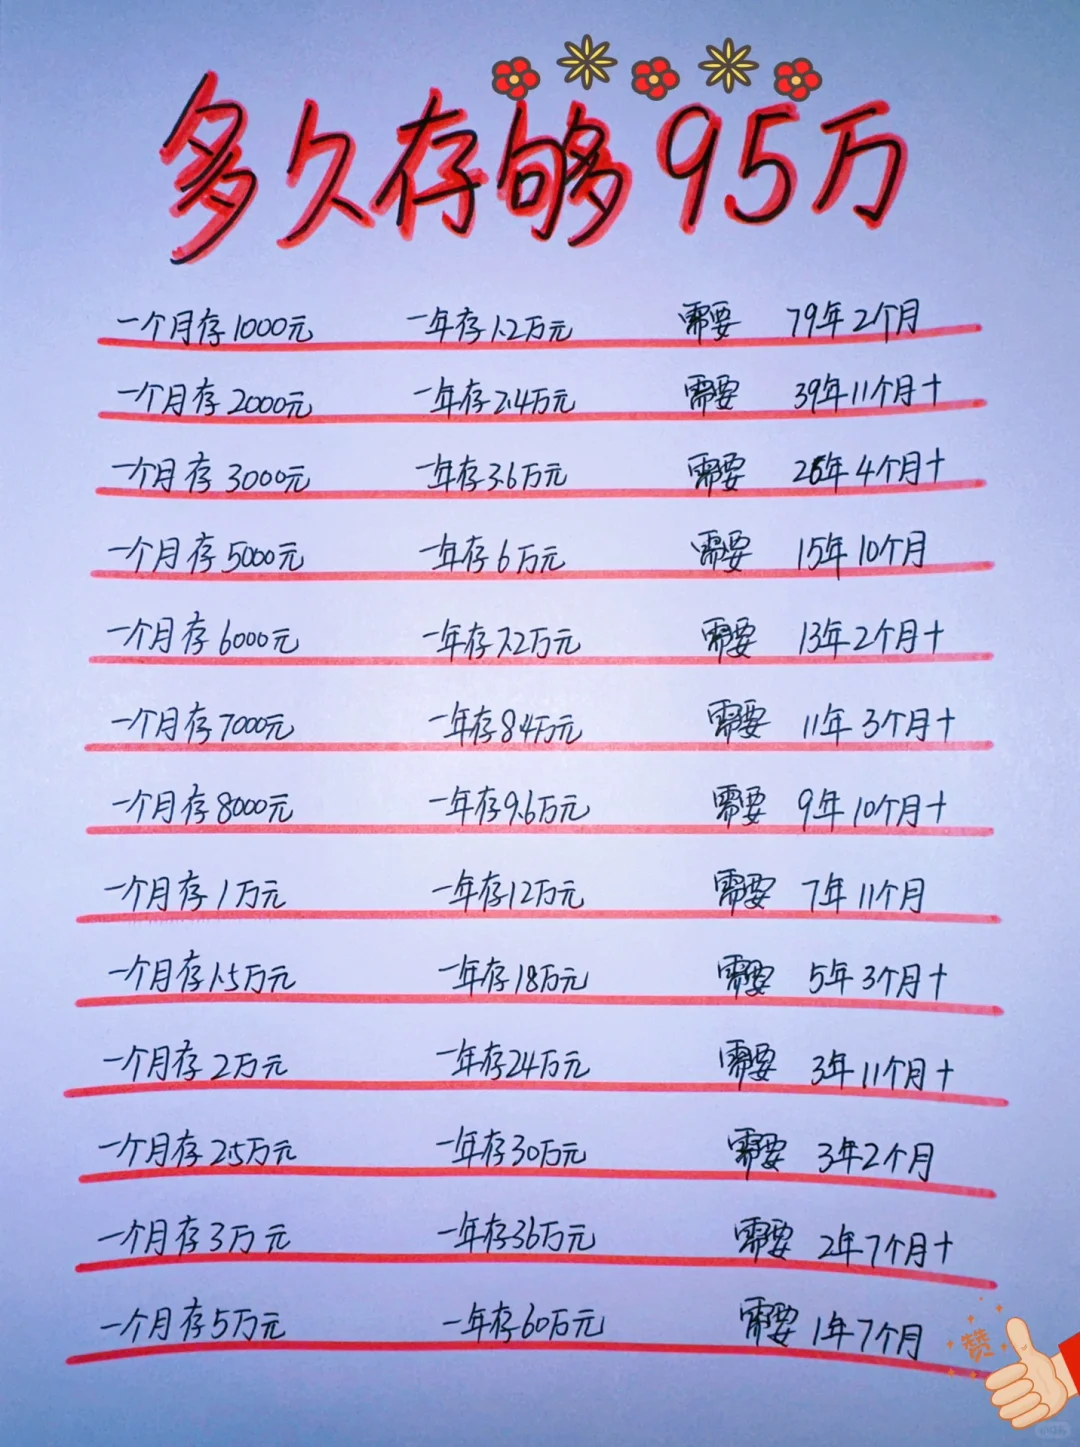 多久存够95万
一个月存1000元 一年存1.2万元 需要 79年2个月
一个月存2000元 一年存2.4万元 需要 39年11个月+
一个月存3000元 一年存3.6万元 需要 26年4个月+
一个月存5000元 一年存6万元 需要 15年10个月
一个月存6000元 一年存7.2万元 需要 13年2个月+
一个月存7000元 一年存8.4万元 需要 11年3个月+
一个月存8000元 一年存9.6万元 需要 9年10个月+
一个月存1万元 一年存12万元 需要 7年11个月
一个月存1.5万元 一年存18万元 需要 5年3个月+
一个月存2万元 一年存24万元 需要 3年11个月+
一个月存2.5万元 一年存30万元 需要 3年2个月
一个月存3万元 一年存36万元 需要 2年7个月+
一个月存5万元 一年存60万元 需要 1年7个月
赞